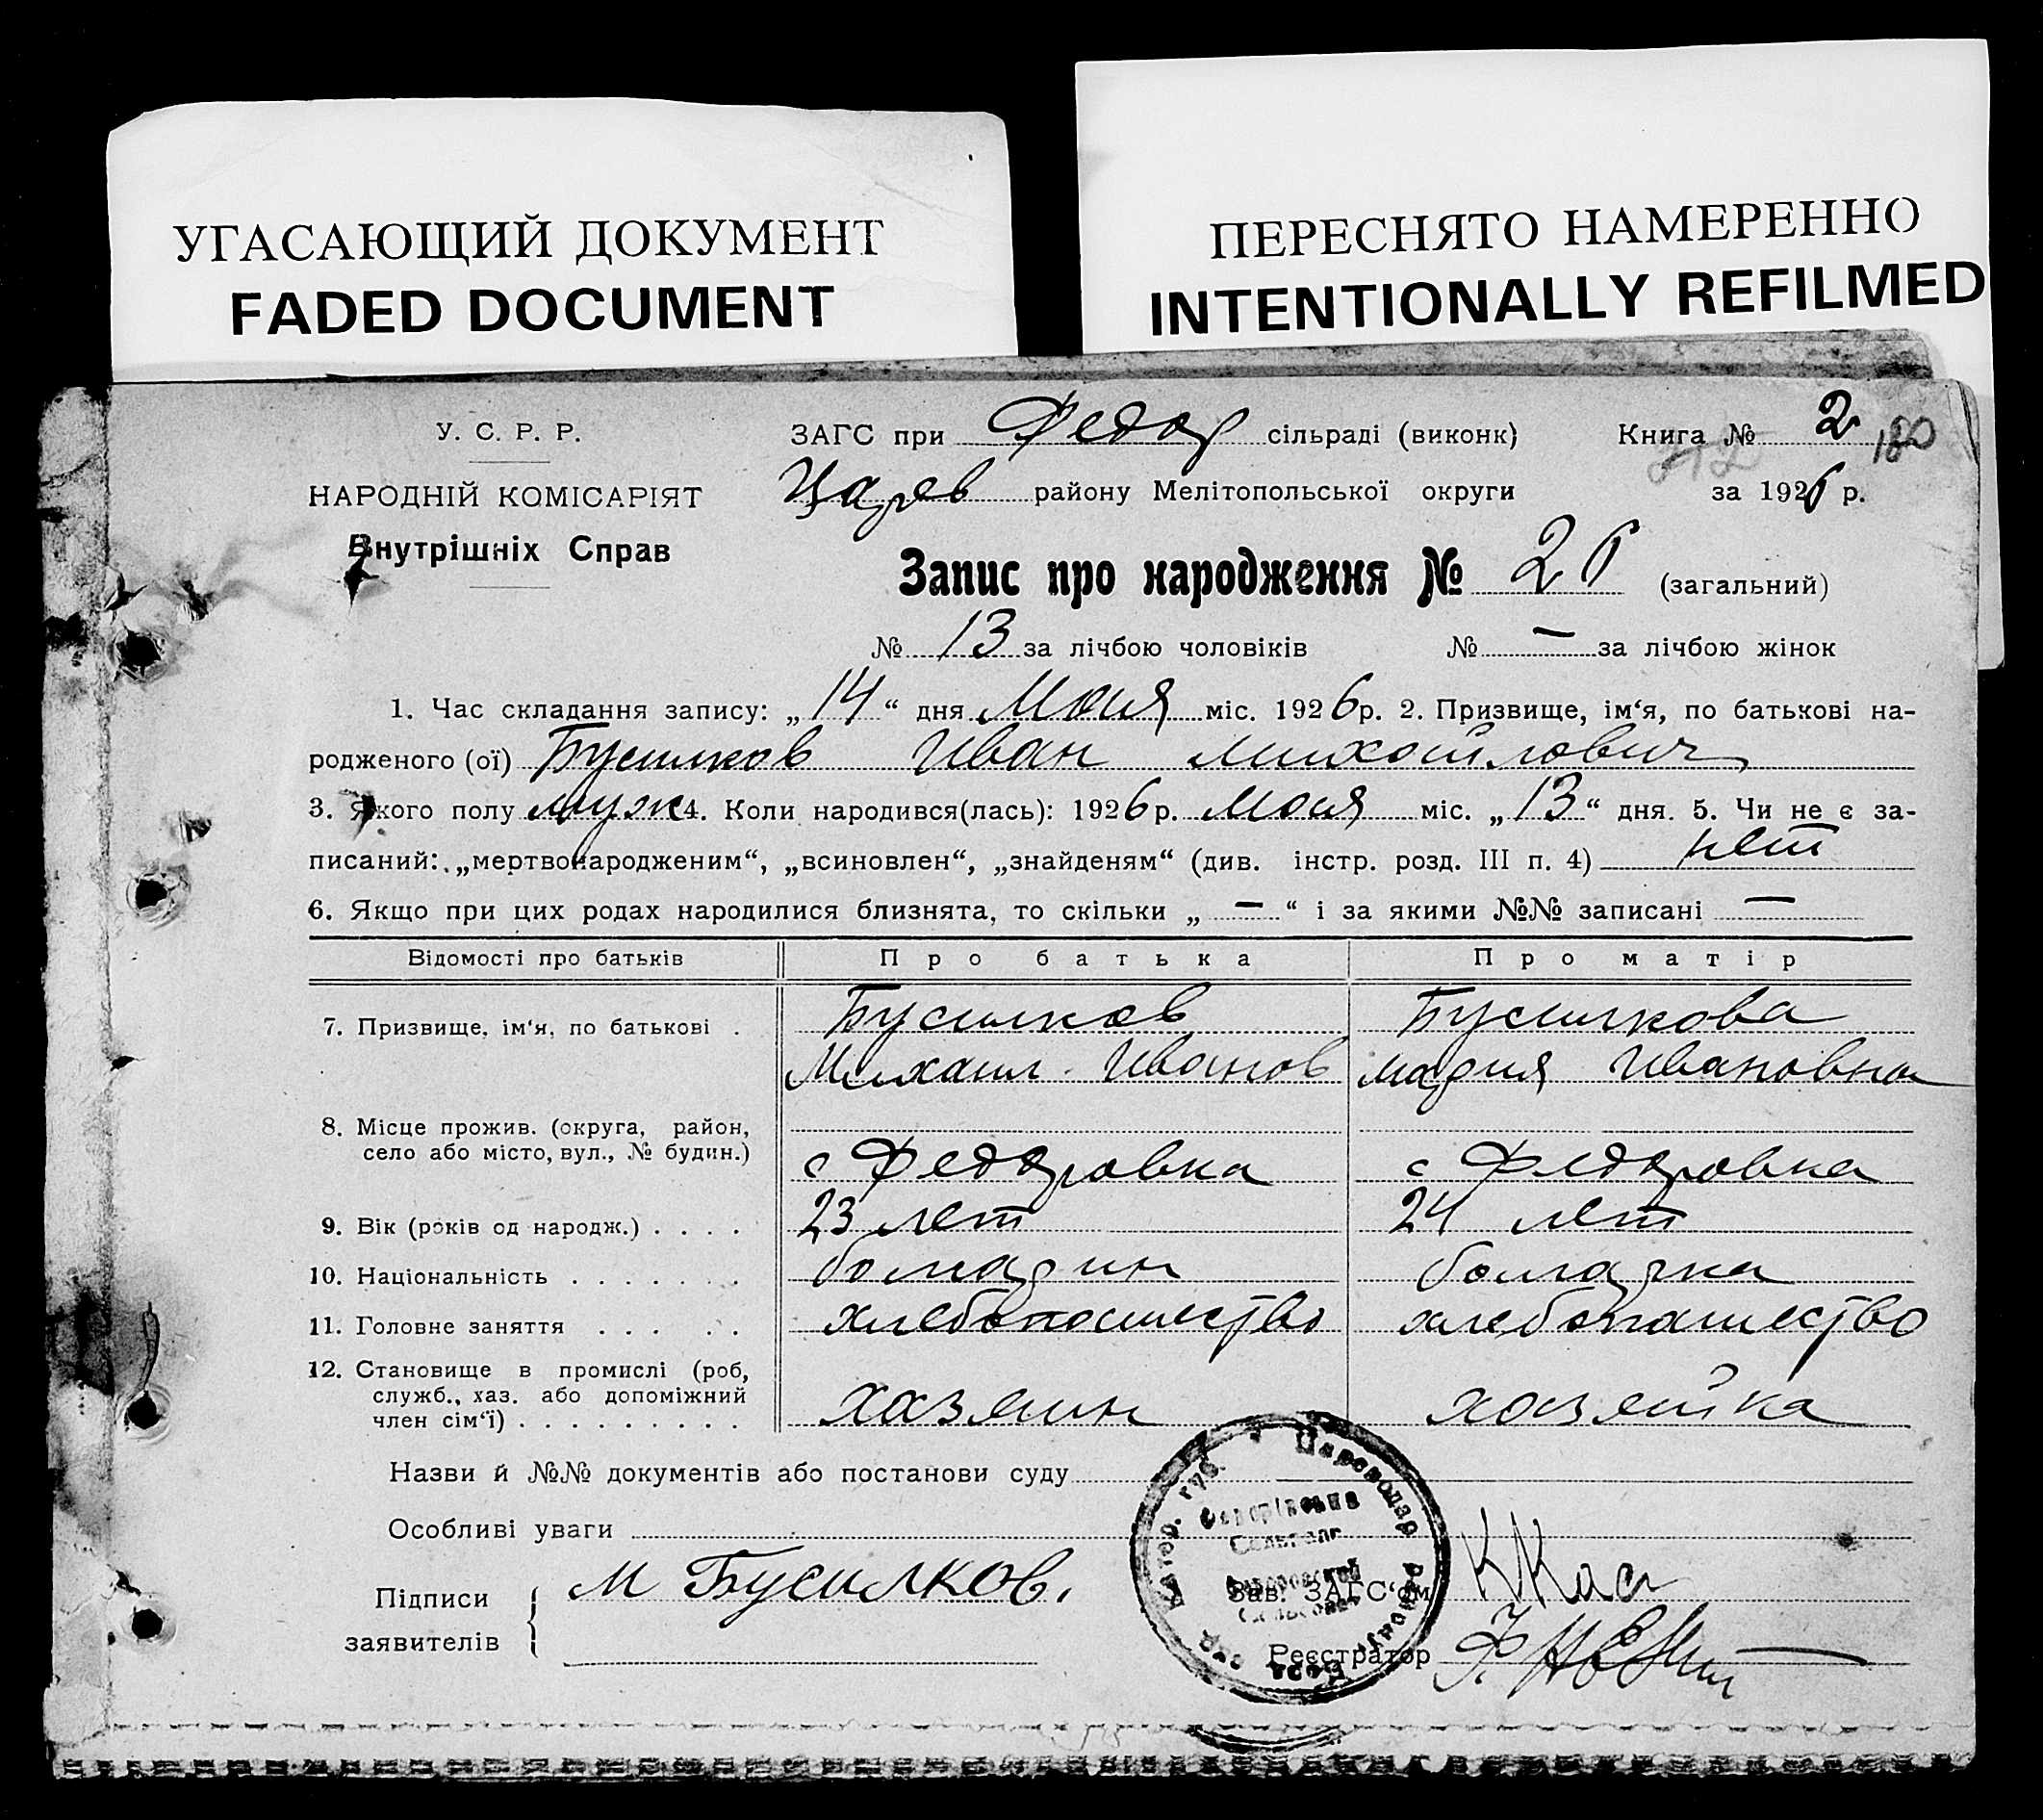 УГАСАЮЩИЙ ДОКУМЕНТ
FADED DOCUMENT
ПЕРЕСНЯТО НАМЕРЕННО
INTENTIONALLY REFILMED
У. С. Р. Р.
НАРОДНІЙ КОМІСАРІЯТ
Внутрішніх Справ
ЗАГС при Федор сільраді (виконк) Книга № 2 180
Царев району Мелітопольської округи за 1926 р.
Запис про народження № 26 (загальний)
№ 13 за лічбою чоловіків № — за лічбою жінок
1. Час складання запису: „14“ дня Мая міс. 1926 р. 2. Призвище, ім‘я, по батькові на-
родженого (ої) Бусилков Иван Михайлович
3. Якого полу муж 4. Коли народився(лась): 1926 р. Мая міс. „13“ дня. 5. Чи не є за-
писаний: „мертвонародженим“, „всиновлен“, „знайденям“ (див. інстр. розд. III п. 4) нет
6. Якщо при цих родах народилися близнята, то скільки „ — “ і за якими №№ записані —
Відомості про батьків Про батька Про матір
7. Призвище, ім‘я, по батькові . Бусилков Бусилкова
Михаил Иванов Мария Ивановна
8. Місце прожив. (округа, район,
село або місто, вул., № будин.) с Федоровка с Федоровка
9. Вік (років од народж.) . . . . 23 лет 24 лет
10. Національність . . . . . . . болгарин болгарка
11. Головне заняття . . . . . хлебопашество хлебопашество
12. Становище в промислі (роб,
служб., хаз. або допоміжний
член сім‘ї) . . . . . . . . . хазяин хозяйка
Назви й №№ документів або постанови суду
Особливі уваги
Підписи
заявителів
М Бусилков.
Зав. ЗАГС‘ом
Реєстратор